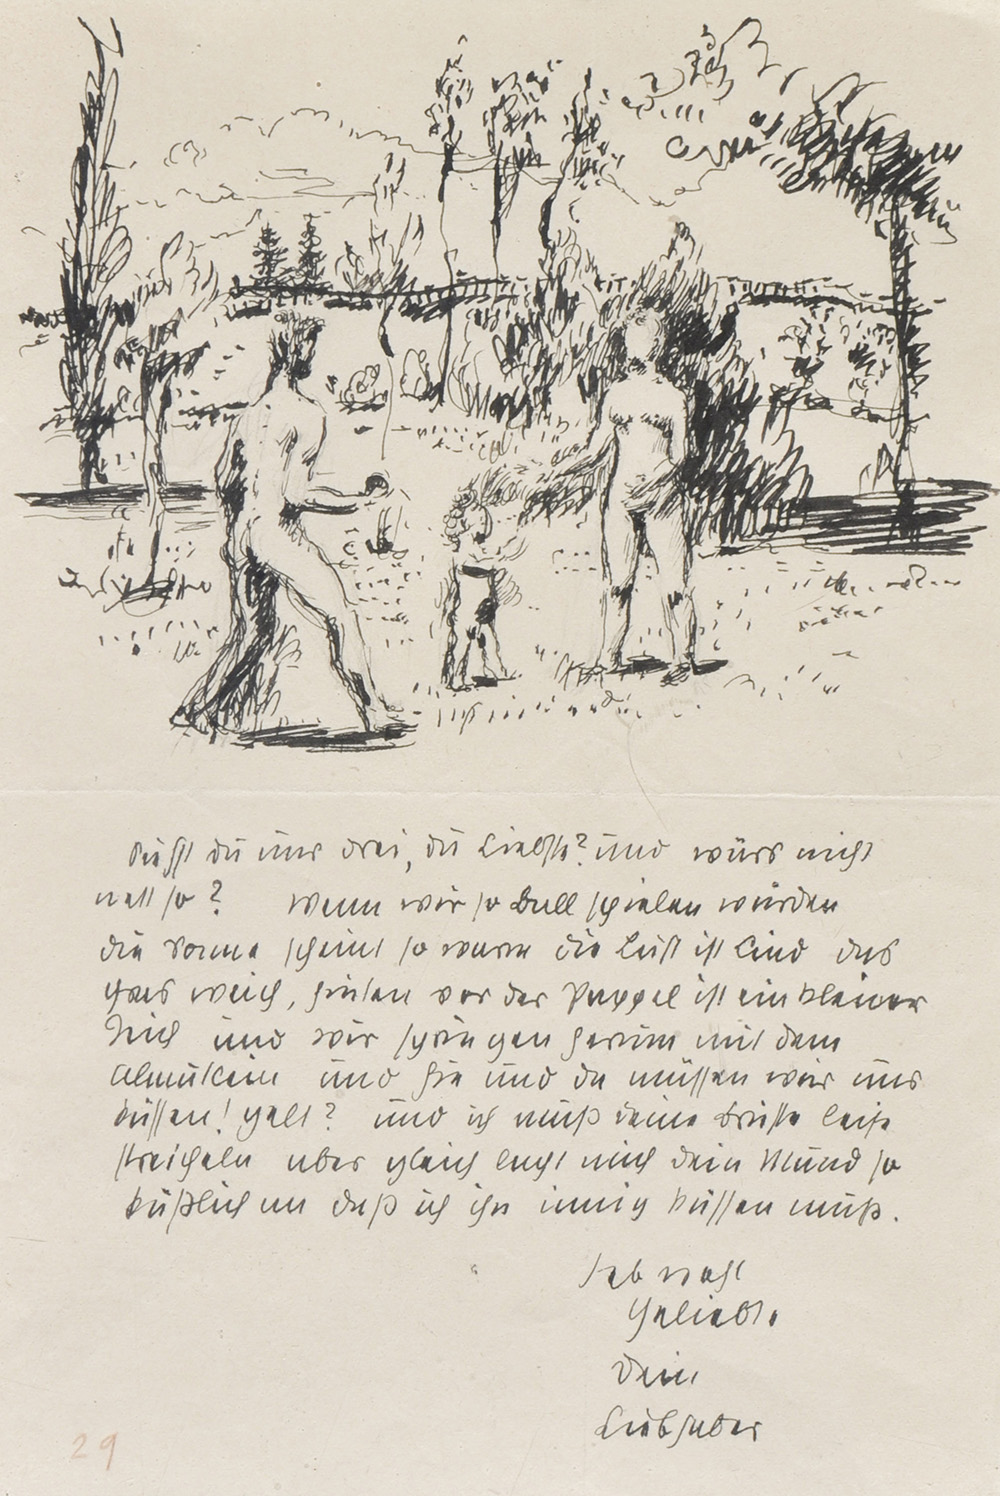 siehst du uns drei, du Liebste? und wärs nicht
nett so? wenn wir so Ball spielen würden
die Sonne scheint so warm die Luft ist lind das
Gras weich, hinten vor der Pappel ist ein kleiner
Teich und wir springen herum mit dem
und hie und da müssen wir uns
küssen! gelt? und ich muß deine Brüste leise
streicheln aber gleich lacht mich dein Mund so
küßlich an daß ich ihn innig küssen muß.
Leb wohl
Geliebte
Dein
Liebhaber
29